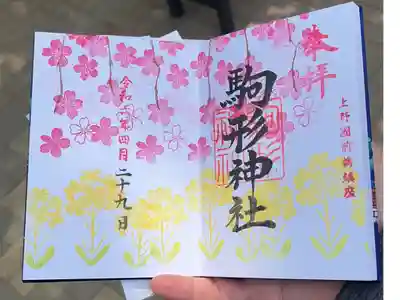 奉拝
上野國前橋鎮座
駒形神社
令和 年四月二十九日